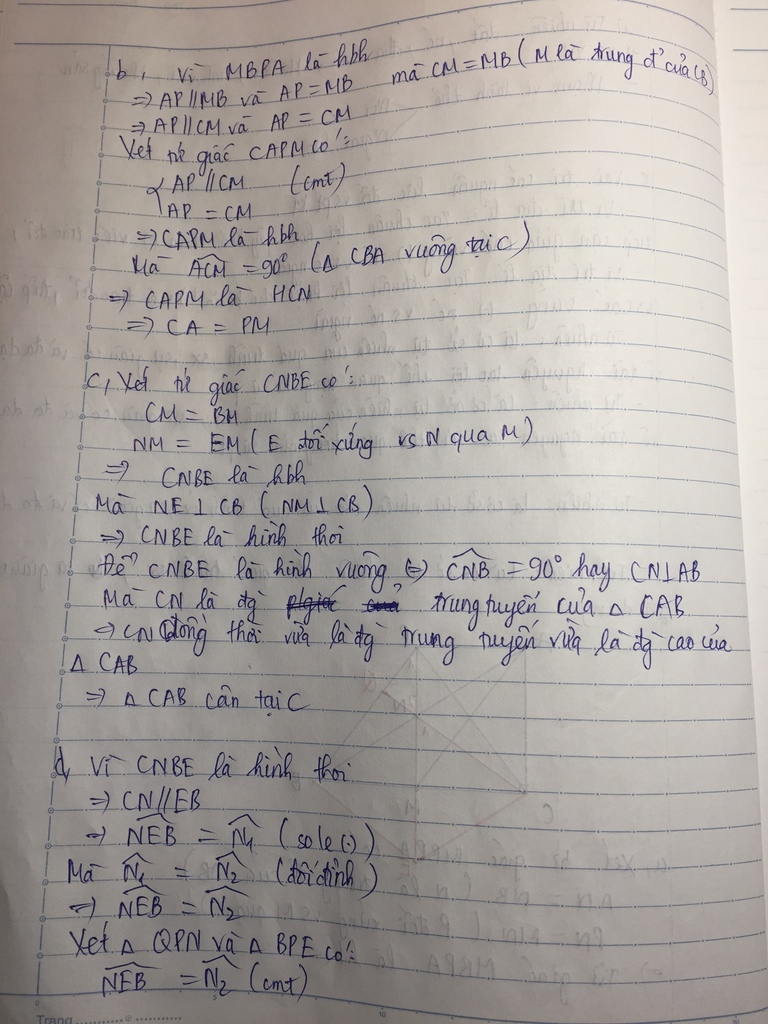 b, Vì MBPA là hbh
⇒ AP//MB và AP = MB mà CM = MB (M là trung đ' của CB)
⇒ AP//CM và AP = CM
Xét tứ giác CAPM có:
{ AP//CM (cmt)
AP = CM
⇒ CAPM là hbh
Mà ACM = 90° (Δ CBA vuông tại C)
⇒ CAPM là HCN
⇒ CA = PM
c, Xét tứ giác CNBE có:
CM = BM
NM = EM (E đối xứng vs N qua M)
⇒ CNBE là hbh
Mà NE ⊥ CB (NM ⊥ CB)
⇒ CNBE là hình thoi
Để CNBE là hình vuông ⇔ CNB = 90° hay CN⊥AB
Mà CN là đg trung tuyến của Δ CAB
⇒ CN đồng thời vừa là đg trung tuyến vừa là đg cao của
Δ CAB
⇒ Δ CAB cân tại C
d, Vì CNBE là hình thoi
⇒ CN//EB
⇒ NEB = N1 (so le (.))
Mà N1 = N2 (đối đỉnh)
⇒ NEB = N2
Xét Δ QPN và Δ BPE có:
NEB = N2 (cmt)
Trang